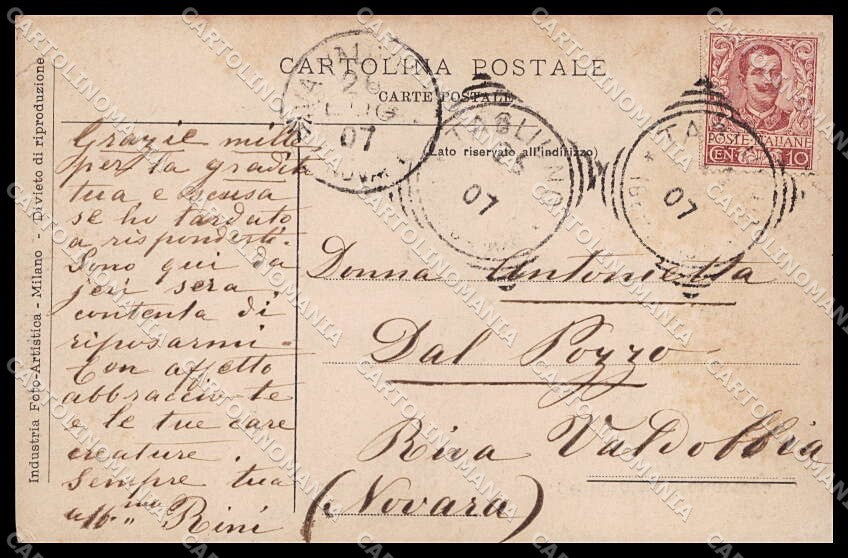 CARTOLINA POSTALE
CARTE POSTALE
(Lato riservato all'indirizzo)
POSTE ITALIANE
CENT. 10
07
TAGLIUNO
07
TAG
07
Industria Foto-Artistica - Milano - Divieto di riproduzione
Grazie mille
per la gradita
tua e scusa
se ho tardato
a risponderti.
Sono qui da
jeri sera
contenta di
riposarmi -
Con affetto
abbraccio te
e le tue care
creature.
Sempre tua
aff.ma Rini
Donna Antonietta
Dal Pozzo
Riva Valdobbia
(Novara)
CARTOLINOMANIA